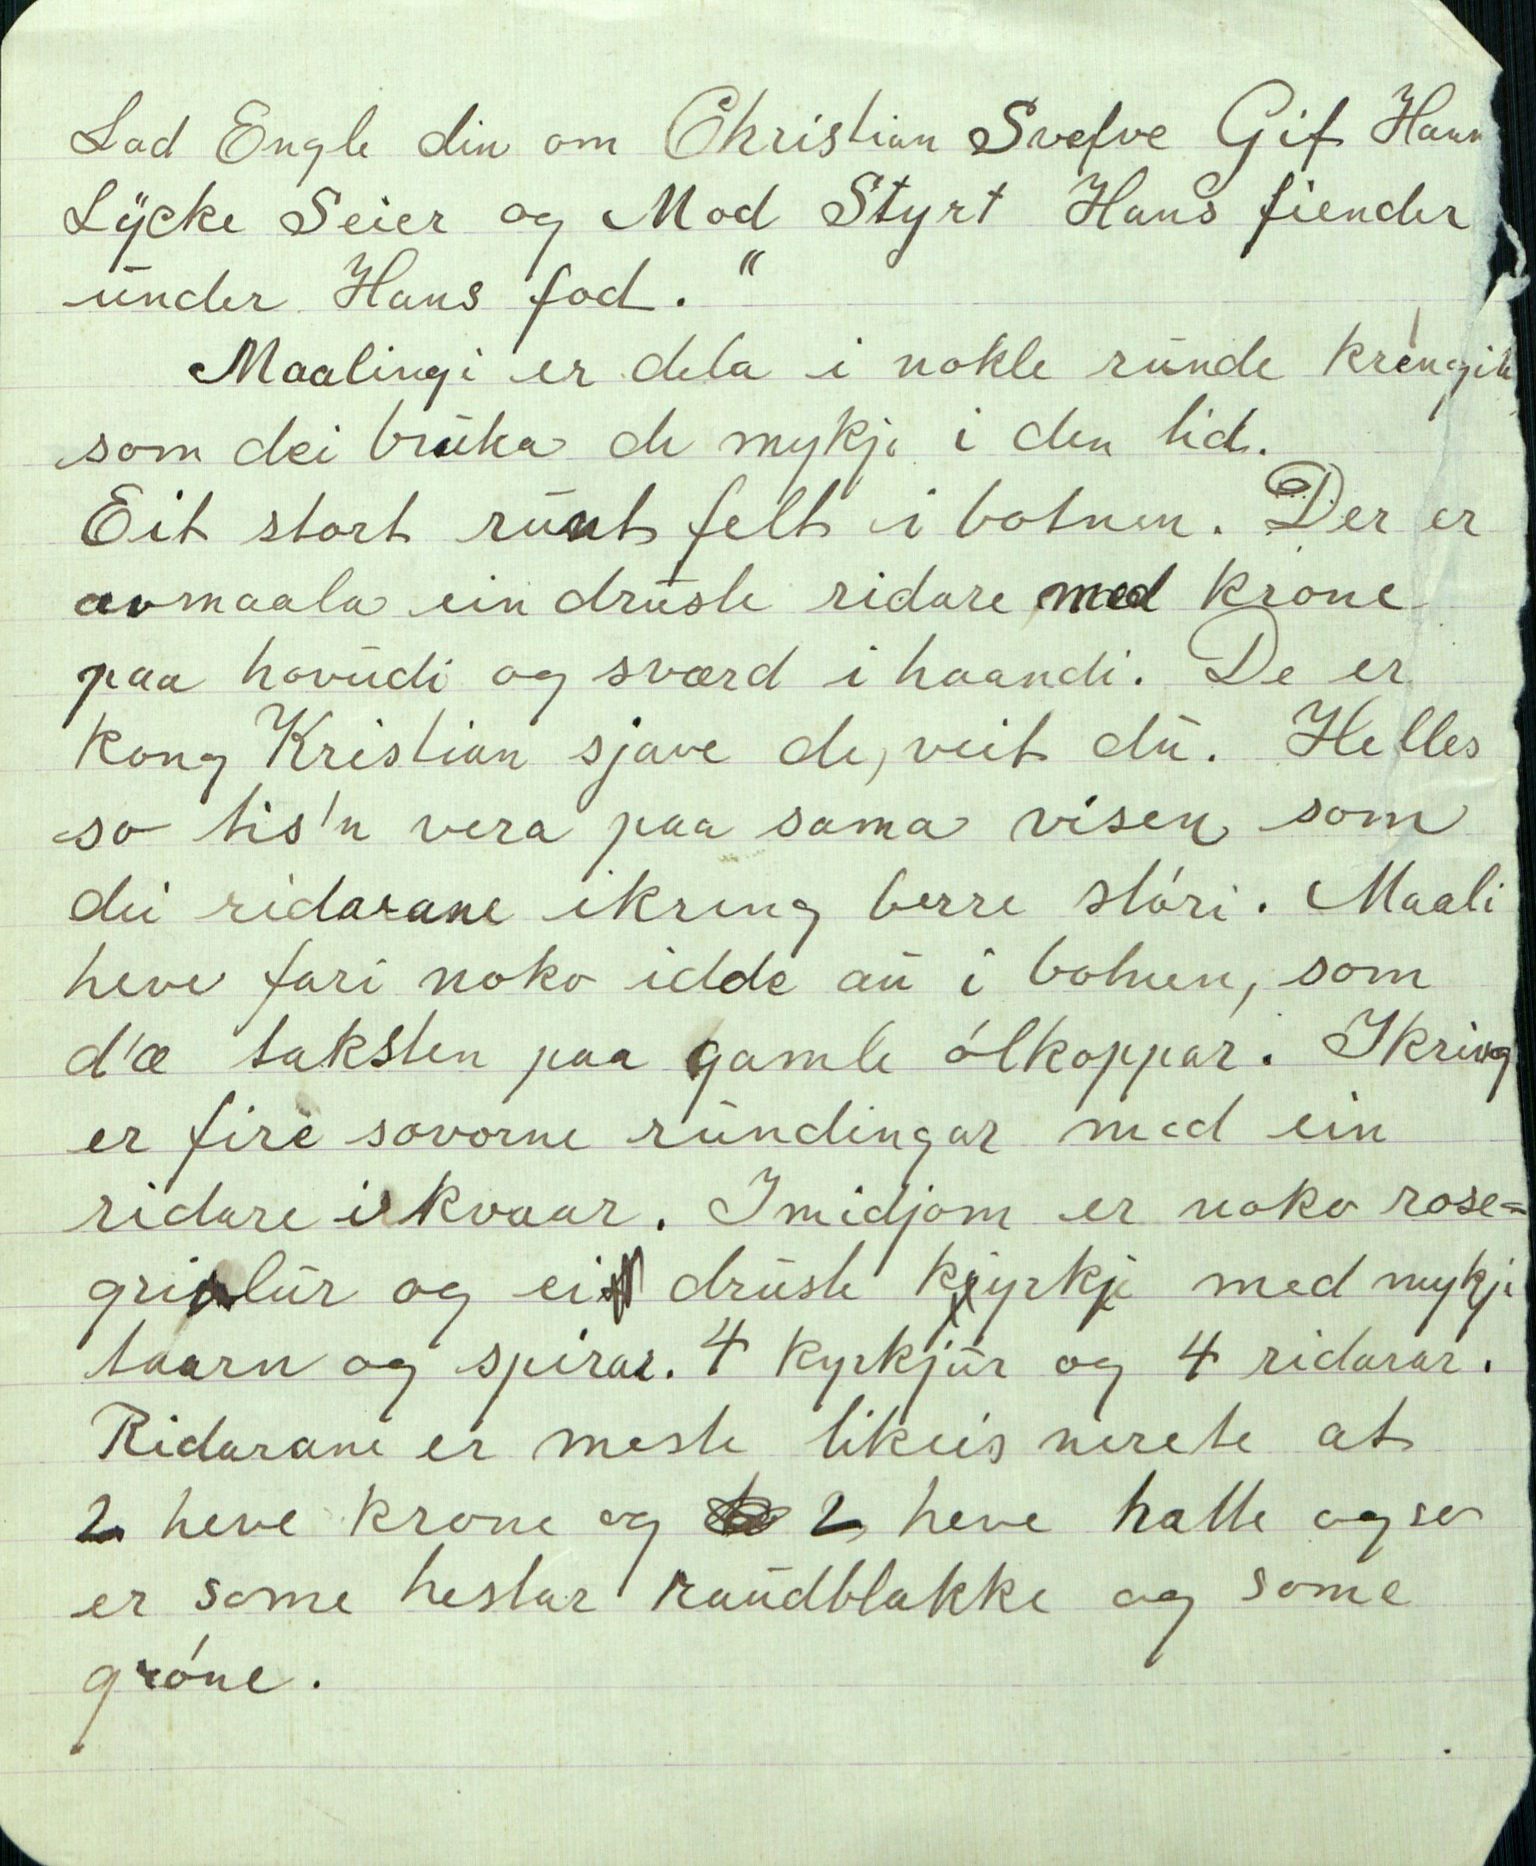 Lad Engle din om Christian Svefve Gif Ham
Lÿcke Seier og Mod Styrt Hans fiender
ūnder Hans fod."
Maalingi er dela i nokle rūnde
som dei brūka de mykje i den tid.
Eit stort rūnt felt i botnen. Der er
avmaala ein drūste ridare med krone
paa hovūdi og sværd i haandi. De er
kong Kristian sjave de, veit dū. Helles
so tis'n vera paa sama visen som
dei ridarane ikring berre stóri. Maali
heve fari noko idde aū i botnen, som
d'æ taksten paa gamle ólkoppar. Ikring
er fire sovorne rūndingar med ein
ridare i kvaar. Imidjom er noko rose=
og ei drūste kyrkje med mykje
taarn og spirar. 4 kyrkjūr og 4 ridarar.
Ridarane er meste likeis nerete at
2 heve krone og 2 heve hatte og so
er some hestar raūdblakke og some
gróne.